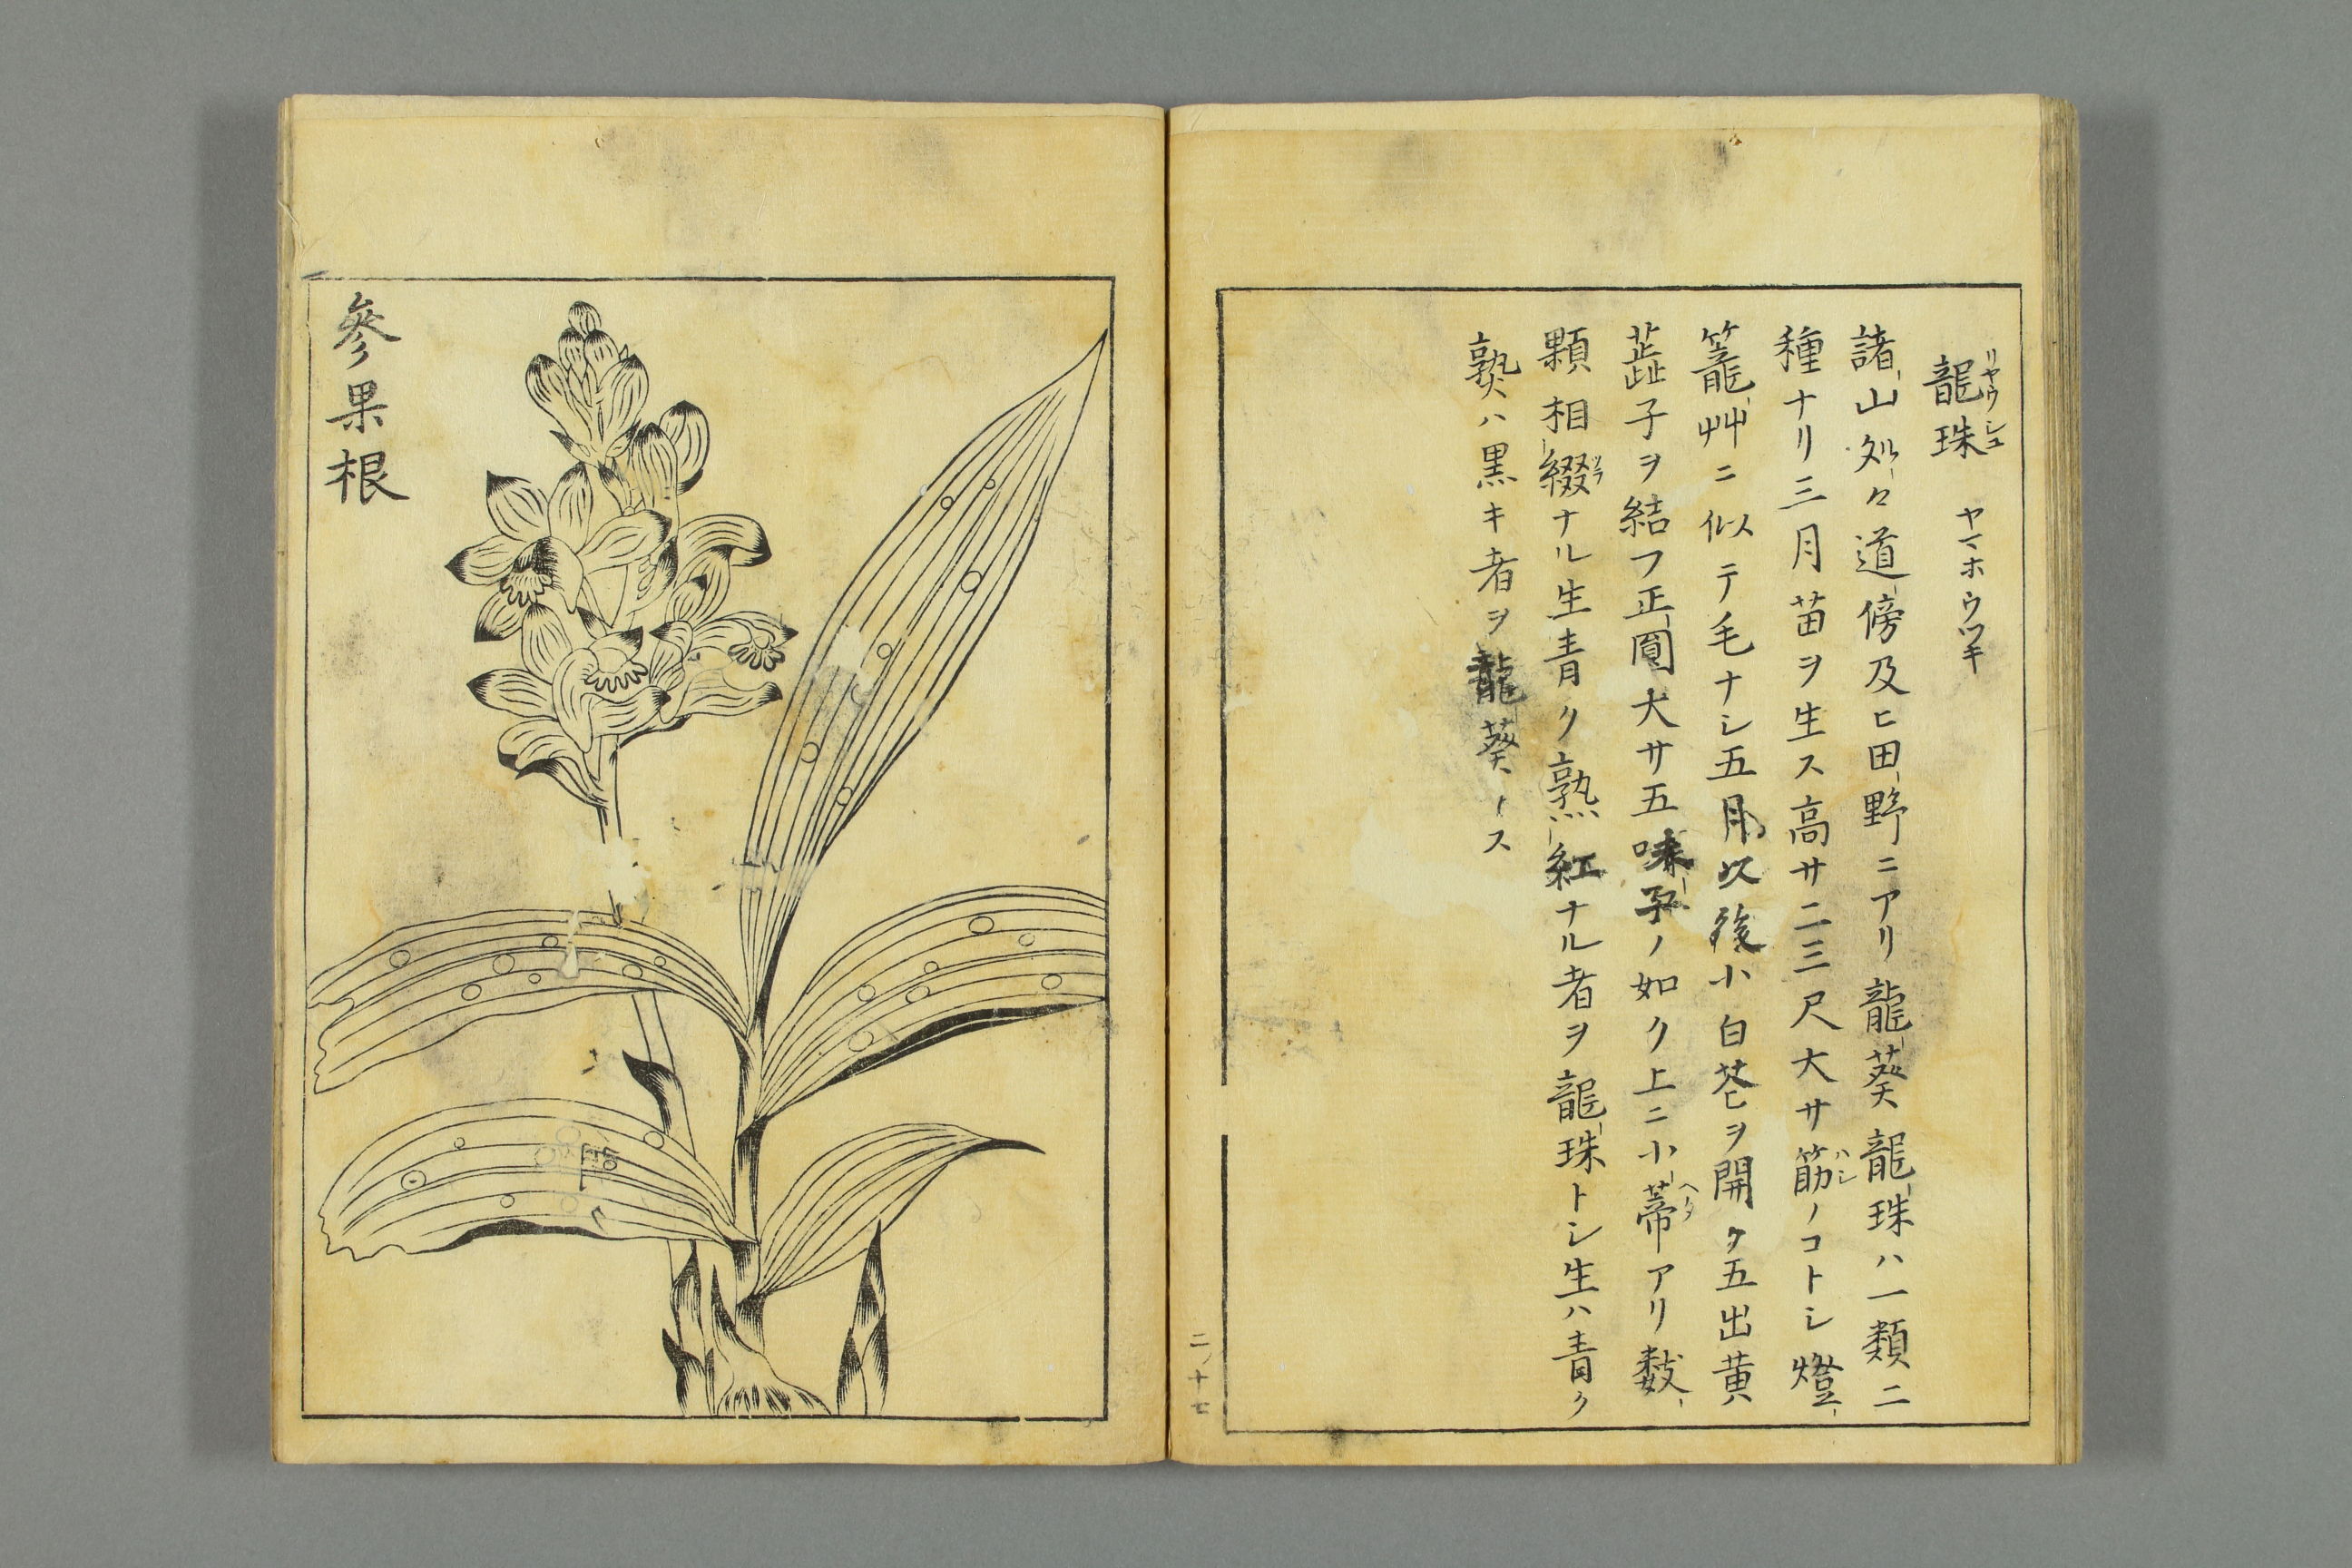 龍珠 リヤウシユ ヤマホウツキ
諸山処々道傍及ヒ田野ニアリ龍葵龍珠ハ一類二
種ナリ三月苗ヲ生ス高サ二三尺大サ筯ハシノコトシ燈
籠艸ニ似テ毛ナシ五月以後小白花ヲ開ク五出黄
蕋子ヲ結フ正圓大サ五味子ノ如ク上ニ小蒂ヘタアリ数
顆相綴ツラナル生青ク熟紅ナル者ヲ龍珠トシ生ハ青ク
熟ハ黒キ者ヲ龍葵トス
二ノ十七
參果根